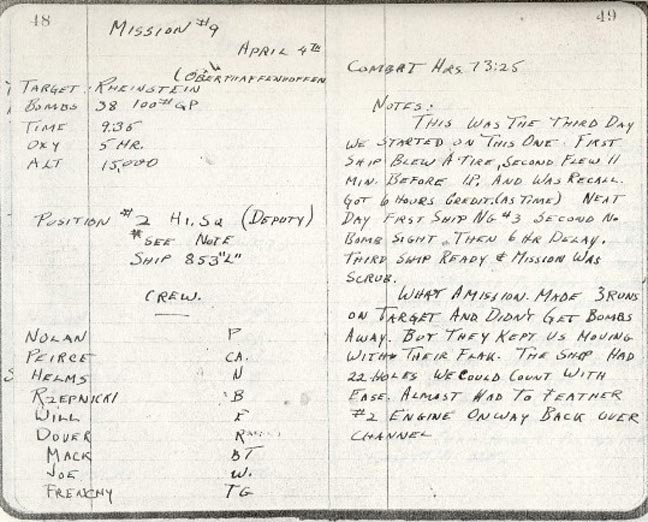 48
MISSION #9
APRIL 4TH
(OBERPFAFFENHOFFEN
TARGET RHEINSTEIN
BOMBS 38 100# GP
TIME 9:35
OXY 5 HR.
ALT 15,000
POSITION #2 HI. SQ (DEPUTY)
* SEE NOTE
SHIP 853 "L"
CREW.
NOLAN P
PEIRCE CA.
HELMS N
RZEPNICKI B
WILL E
DOVER R
MACK BT
JOE W.
FRENCHY TG
49
COMBAT HRS 73:25
NOTES:
THIS WAS THE THIRD DAY
WE STARTED ON THIS ONE. FIRST
SHIP BLEW A TIRE, SECOND FLEW 11
MIN. BEFORE I.P. AND WAS RECALL.
GOT 6 HOURS CREDIT. (AS TIME) NEXT
DAY FIRST SHIP NG #3 SECOND NO
BOMB SIGHT. THEN 6 HR DELAY.
THIRD SHIP READY & MISSION WAS
SCRUB.
WHAT A MISSION. MADE 3 RUNS
ON TARGET AND DIDN'T GET BOMBS
AWAY. BUT THEY KEPT US MOVING
WITH THEIR FLAK. THE SHIP HAD
22 HOLES WE COULD COUNT WITH
EASE. ALMOST HAD TO FEATHER
#2 ENGINE ON WAY BACK OVER
CHANNEL